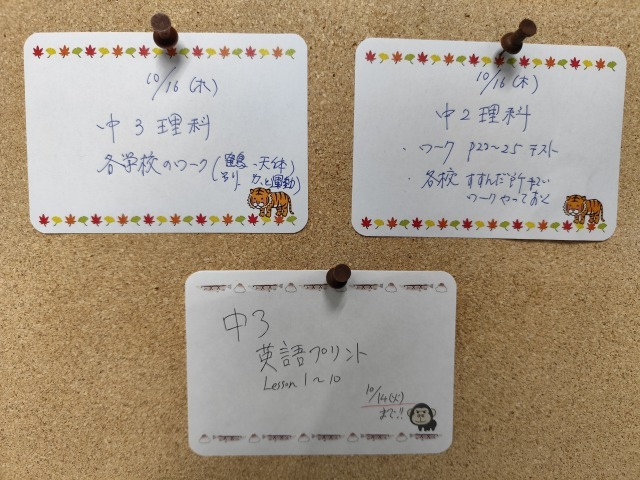 10/16(木)
中3理科
各学校のワーク(
・天体
力と運動)
10/16(木)
中2理科
・ワーク P22〜25 テスト
・各校 すすんだ所まで
ワークやっておく
中3
英語プリント
Lesson 1〜10
10/14(火)
まで!!